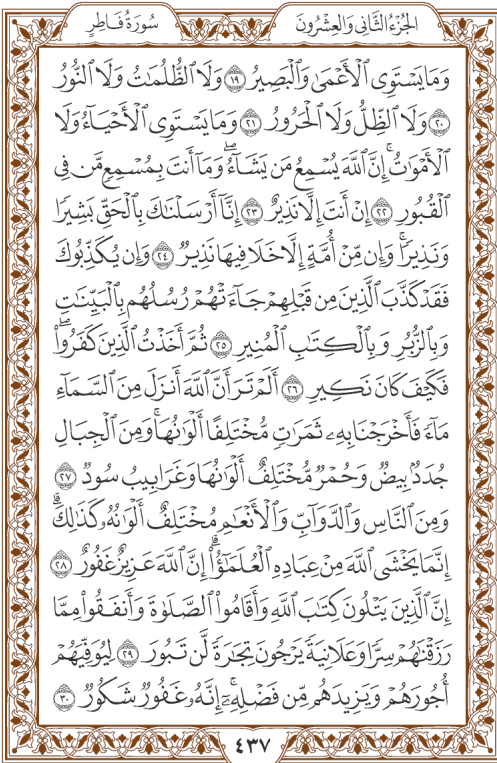 الجُزْءُ الثَّانِي وَالعِشْرُونَ
سُورَةُ فَاطِرٍ
وَمَا يَسْتَوِي ٱلْأَعْمَىٰ وَٱلْبَصِيرُ ١٩ وَلَا ٱلظُّلُمَٰتُ وَلَا ٱلنُّورُ
٢٠ وَلَا ٱلظِّلُّ وَلَا ٱلْحَرُورُ ٢١ وَمَا يَسْتَوِي ٱلْأَحْيَآءُ وَلَا
ٱلْأَمْوَٰتُۚ إِنَّ ٱللَّهَ يُسْمِعُ مَن يَشَآءُۖ وَمَآ أَنتَ بِمُسْمِعٍ مَّن فِي
ٱلْقُبُورِ ٢٢ إِنْ أَنتَ إِلَّا نَذِيرٌ ٢٣ إِنَّآ أَرْسَلْنَٰكَ بِٱلْحَقِّ بَشِيرًا
وَنَذِيرًاۚ وَإِن مِّنْ أُمَّةٍ إِلَّا خَلَا فِيهَا نَذِيرٌ ٢٤ وَإِن يُكَذِّبُوكَ
فَقَدْ كَذَّبَ ٱلَّذِينَ مِن قَبْلِهِمْ جَآءَتْهُمْ رُسُلُهُم بِٱلْبَيِّنَٰتِ
وَبِٱلزُّبُرِ وَبِٱلْكِتَٰبِ ٱلْمُنِيرِ ٢٥ ثُمَّ أَخَذْتُ ٱلَّذِينَ كَفَرُوا۟ۖ
فَكَيْفَ كَانَ نَكِيرِ ٢٦ أَلَمْ تَرَ أَنَّ ٱللَّهَ أَنزَلَ مِنَ ٱلسَّمَآءِ
مَآءً فَأَخْرَجْنَا بِهِۦ ثَمَرَٰتٍ مُّخْتَلِفًا أَلْوَٰنُهَاۚ وَمِنَ ٱلْجِبَالِ
جُدَدٌۢ بِيضٌ وَحُمْرٌ مُّخْتَلِفٌ أَلْوَٰنُهَا وَغَرَابِيبُ سُودٌ ٢٧
وَمِنَ ٱلنَّاسِ وَٱلدَّوَآبِّ وَٱلْأَنْعَٰمِ مُخْتَلِفٌ أَلْوَٰنُهُۥ كَذَٰلِكَۗ
إِنَّمَا يَخْشَى ٱللَّهَ مِنْ عِبَادِهِ ٱلْعُلَمَٰٓؤُا۟ۗ إِنَّ ٱللَّهَ عَزِيزٌ غَفُورٌ ٢٨
إِنَّ ٱلَّذِينَ يَتْلُونَ كِتَٰبَ ٱللَّهِ وَأَقَامُوا۟ ٱلصَّلَوٰةَ وَأَنفَقُوا۟ مِمَّا
رَزَقْنَٰهُمْ سِرًّا وَعَلَانِيَةً يَرْجُونَ تِجَٰرَةً لَّن تَبُورَ ٢٩ لِيُوَفِّيَهُمْ
أُجُورَهُمْ وَيَزِيدَهُم مِّن فَضْلِهِۦٓۚ إِنَّهُۥ غَفُورٌ شَكُورٌ ٣٠
٤٣٧